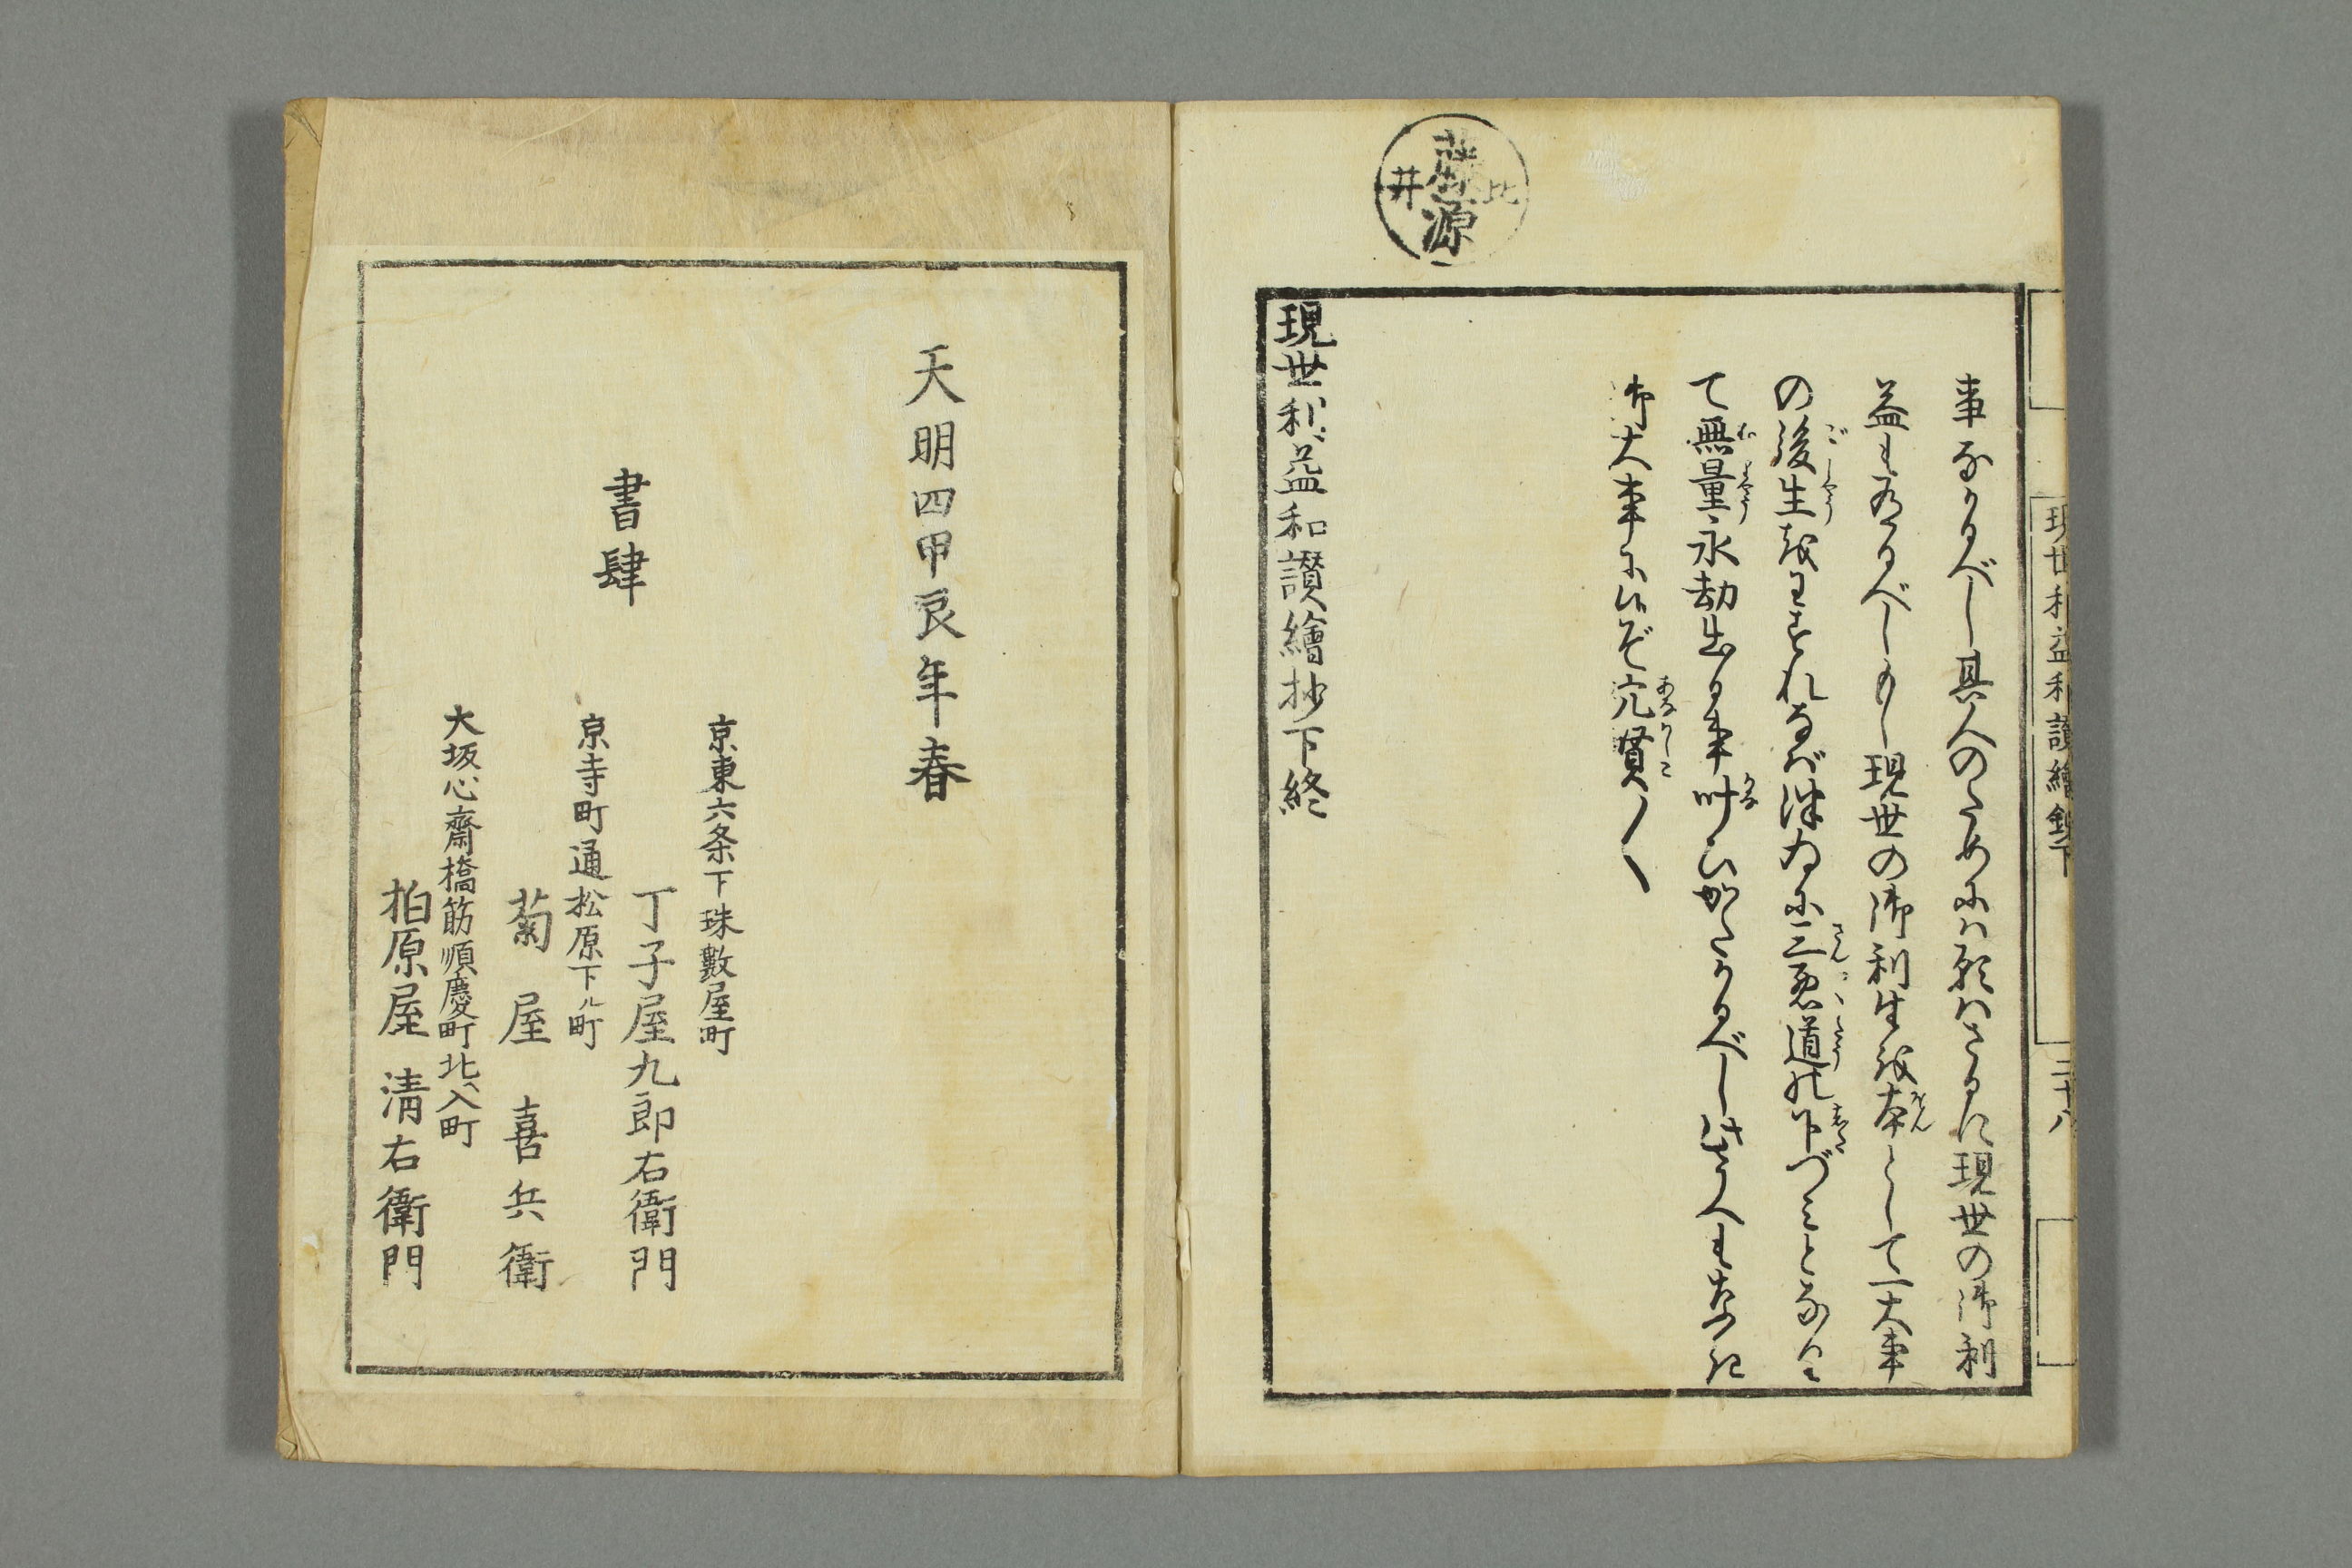 現世利益和讃繪鈔下
三十八
事なるべし其人のためには願はざるに現世の御利
益も有るべしもし現世の御利生を本として一大事
の後生をわすれなば終に三悪道の下づみとなり
て無量永劫出る事叶ひがたかるべし
御大事に候ぞ穴賢〳〵
現世利益和讃繪抄下終
井
源
天明四甲辰年春
書肆
京東六条下珠數屋町
丁子屋九郎右衛門
京寺町通松原下ル町
菊屋喜兵衛
大坂心齋橋筋順慶町北ヘ入町
柏原屋清右衛門